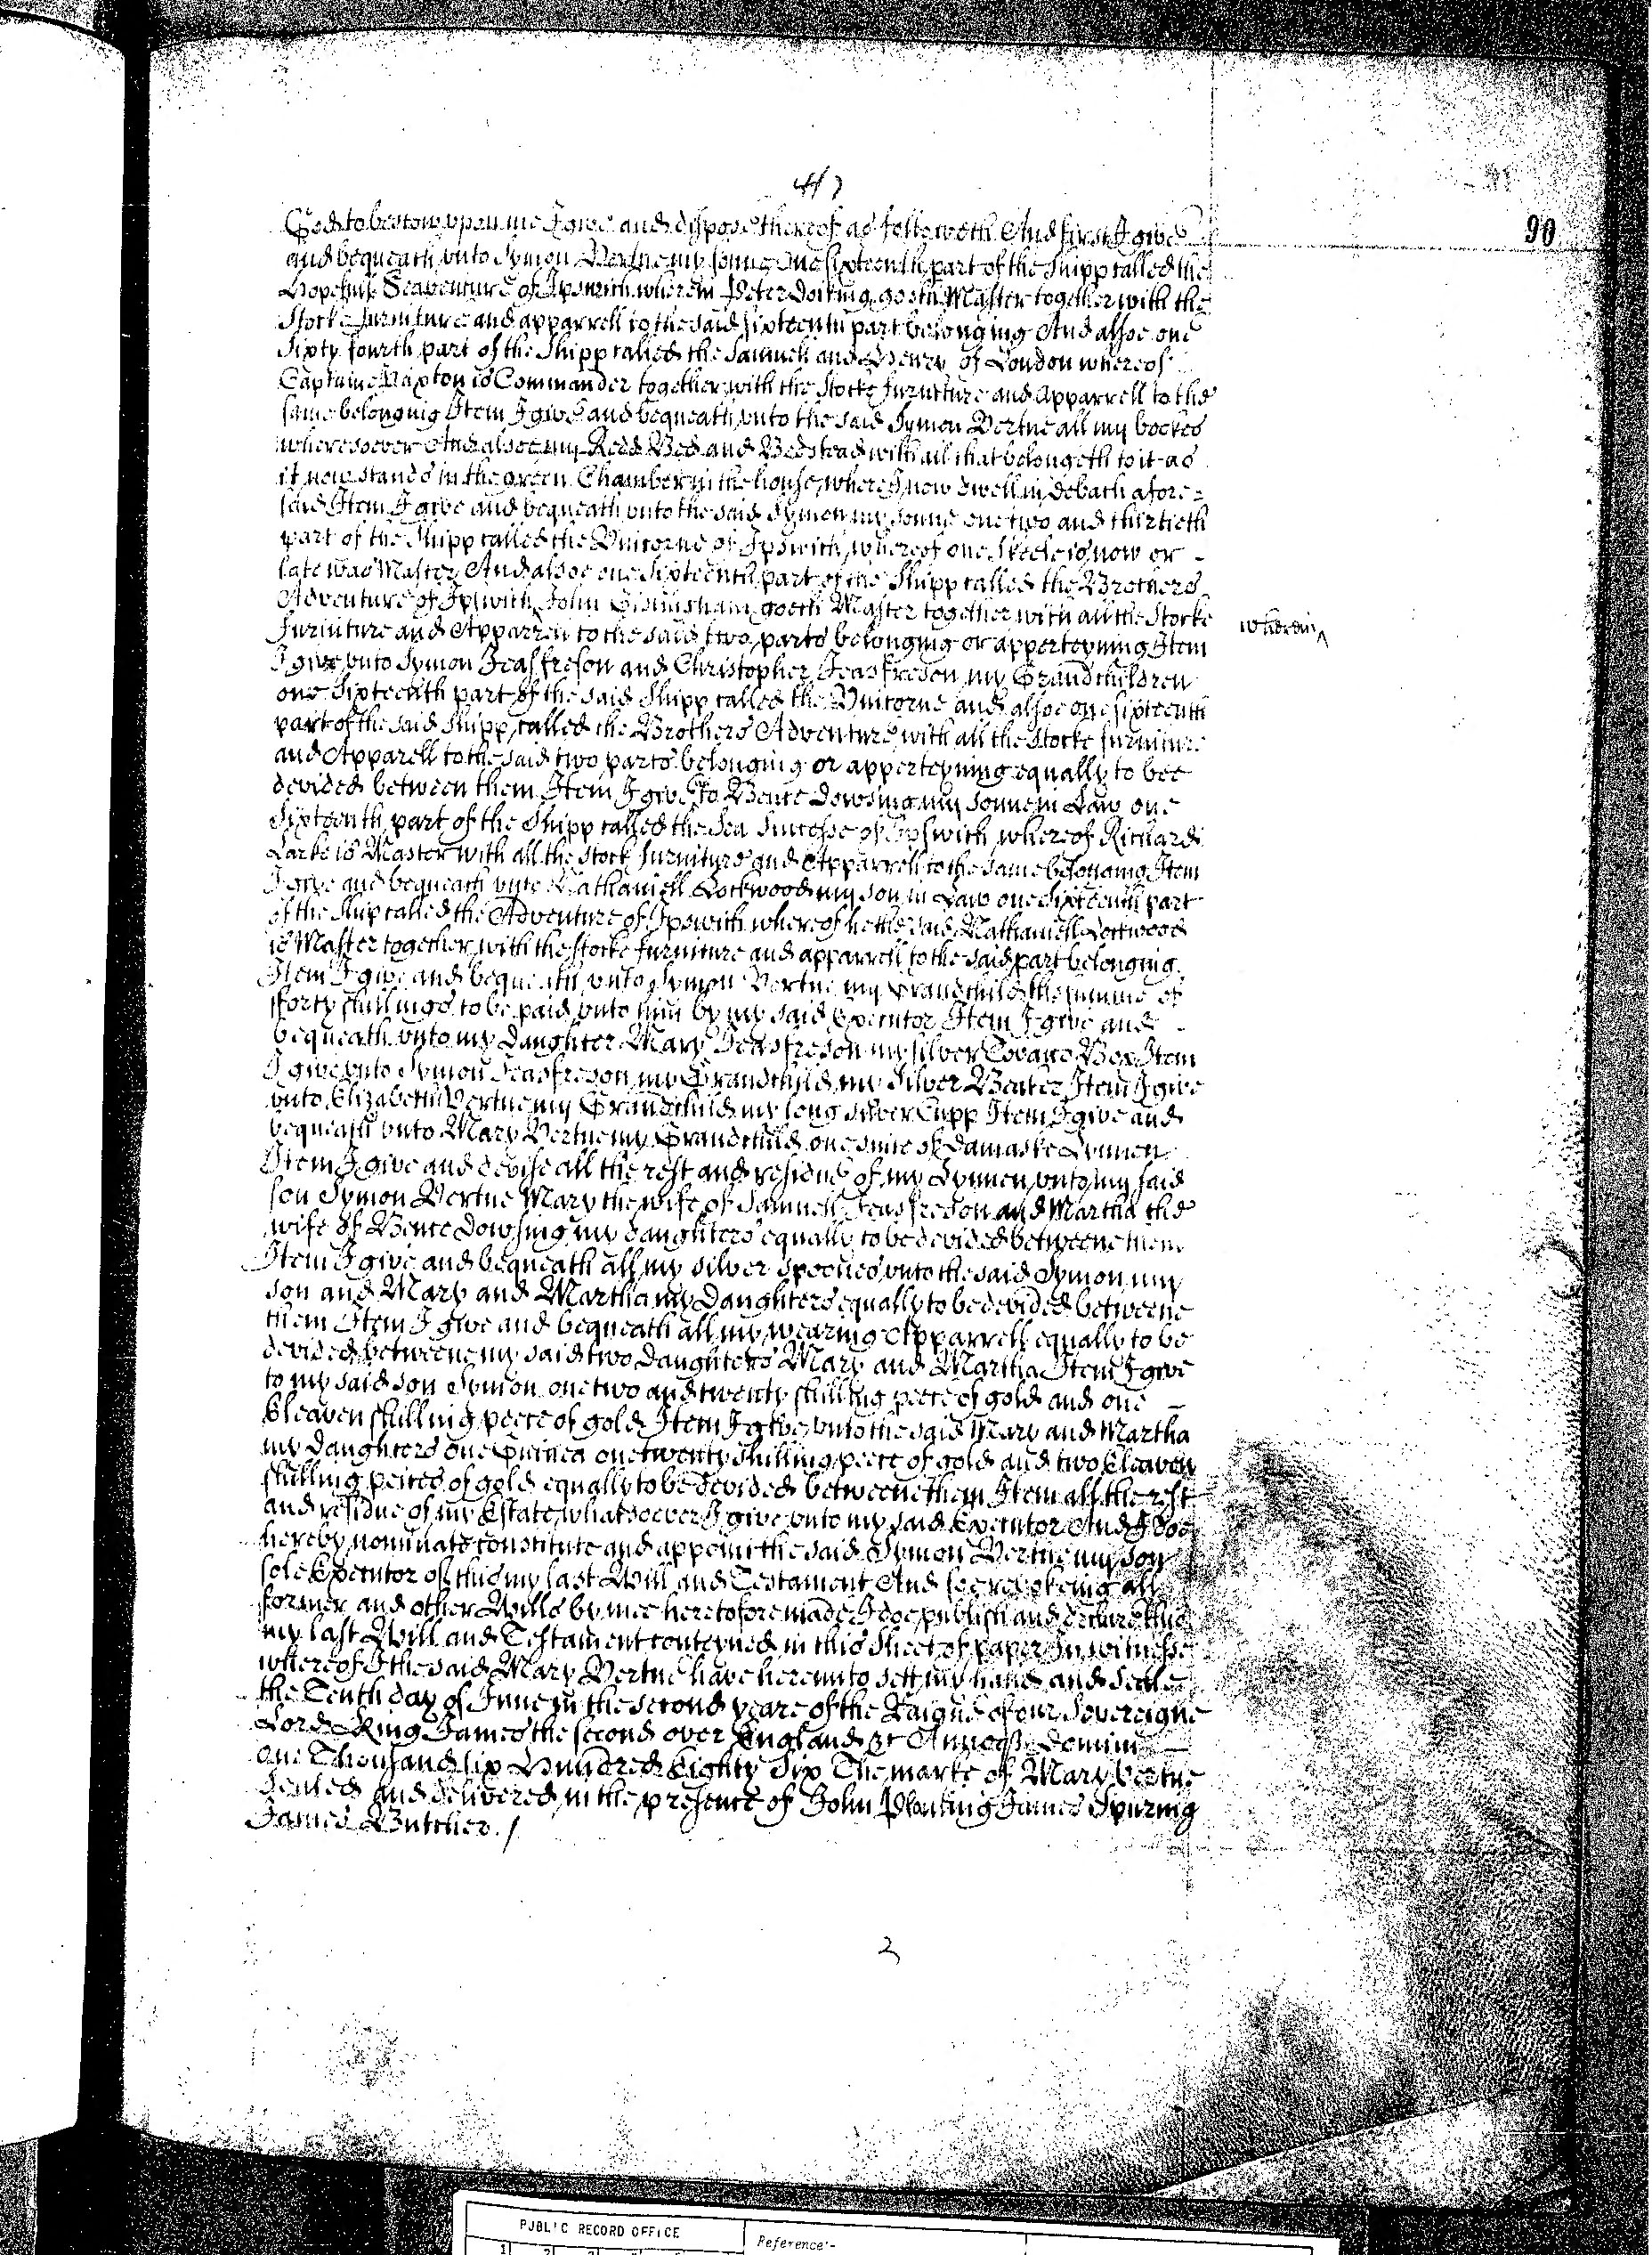 90
God to bestow upon me I give and dispose thereof as followeth And first I give
and bequeath unto Symon Vertue my sonne one sixteenth part of the Shipp called the
Hopefull Seaventure of Ipswich wherein Peter goeth Master together with the
Stocke furniture and apparrell to the said sixteenth part belonging And alsoe one
Sixty fourth part of the Shipp called the Samuell and Henry of London whereof
Captaine is Commander together with the Stocke furniture and Apparrell to the
same belonging Item I give and bequeath unto the said Symon Vertue all my bookes
wheresoever And alsoe my Redd Bed and Bedstead with all that belongeth to it as
it now stands in the green Chamber in the house where I now dwell in debach afore=
said Item I give and bequeath unto the said Symon my sonne one two and thirtieth
part of the Shipp called the Unicorne of Ipswich whereof one Skeele is now or
late was Master And alsoe one Sixteenth part of the Shipp called the Brothers
Adventure of Ipswich John goeth Master together with all the Stocke
wherein
furniture and Apparrell to the said two parts belonging or apperteyning Item
I give unto Symon Jeaffreson and Christopher Jeaffreson my Grandchildren
one Sixteenth part of the said Shipp called the Unicorne and alsoe one sixteenth
part of the said Shipp called the Brothers Adventure with all the Stocke furniture
and Apparell to the said two parts belonging or apperteyning equally to bee
devided between them Item I give to Bence Dowsing my sonne in Law one
Sixteenth part of the Shipp called the Sea Successe of Ipswich whereof Richard
Larke is Master with all the stock furniture and Apparrell to the same belonging Item
I give and bequeath unto Nathaniell Lockwood my son in Law one Sixteenth part
of the Ship called the Adventure of Ipswich whereof he the said Nathaniell Lockwood
is Master together with the stocke furniture and apparrell to the said part belonging
Item I give and bequeath unto Symon Vertue my Grandchild the summe of
fforty shillings to be paid unto him by my said Executor Item I give and
bequeath unto my daughter Mary Jeaffreson my silver Box Item
I give unto Symon Jeaffreson my Grandchild my Silver Beaker Item I give
unto Elizabeth Vertue my Grandchild my long silver Cupp Item I give and
bequeath unto Mary Vertue my Grandchild one suite of damaske Lynnen
Item I give and devise all the rest and residue of my Lynnen unto my said
son Symon Vertue Mary the wife of Samuell Jeaffreson and Martha the
wife of Bence Dowsing my daughters equally to be devided betweene them
Item I give and bequeath all my silver spoones unto the said Symon my
son and Mary and Martha my Daughters equally to be devided betweene
them Item I give and bequeath all my wearing Apparrell equally to be
devided betweene my said two daughters Mary and Martha Item I give
to my said son Symon one two and twenty shilling peece of gold and one
Eleaven shilling peece of gold Item I give unto the said Mary and Martha
my daughters one Guinea one twenty shilling peece of gold and two Eleaven
shilling peeces of gold equally to be devided betweene them Item all the rest
and residue of my Estate whatsoever I give unto my said Executor And I doe
hereby nominate constitute and appoint the said Symon Vertue my son
sole Executor of this my last Will and Testament And soe revokeing all
former and other Wills by mee heretofore made I doe publish and declare this
my last Will and Testament conteyned in this sheet of paper In witnesse
whereof I the said Mary Vertue have hereunto sett my hand and seale
the Tenth day of June in the second yeare of the Raigne of our Sovereigne
Lord King James the second over England &c Annoq Domini
one Thousand six Hundred Eighty Six The marke of Mary Vertue
Sealed and delivered in the presence of John James Spuring
James Butcher /
2
PUBLIC RECORD OFFICE
Reference:-